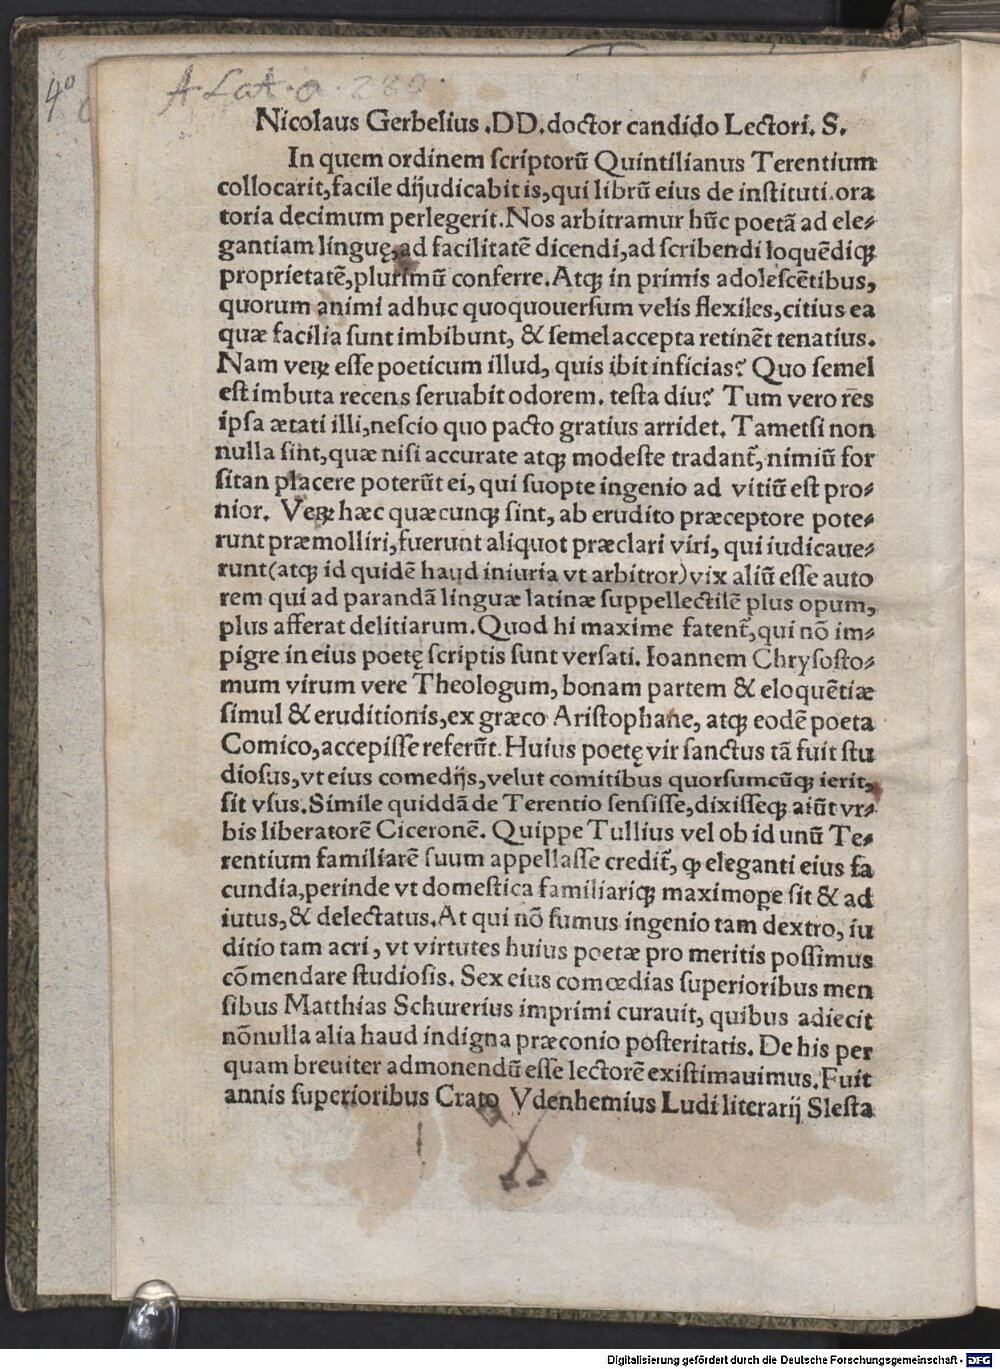 4°
A. Lat. a. 280.
Nicolaus Gerbelius .DD. doctor candido Lectori. S.
In quem ordinem ſcriptorū Quintilianus Terentium
collocarit, facile dijudicabit is, qui librū eius de inſtituti. ora
toria decimum perlegerit. Nos arbitramur hūc poetā ad ele⸗
gantiam linguę, ad facilitatē dicendi, ad ſcribendi loquēdiqꝫ
proprietatē, plurimū conferre. Atqꝫ in primis adoleſcētibus,
quorum animi adhuc quoquouerſum velis flexiles, citius ea
quæ facilia ſunt imbibunt, & ſemel accepta retinēt tenatius.
Nam veꝝ eſſe poeticum illud, quis ibit inficias? Quo ſemel
eſt imbuta recens ſeruabit odorem. teſta diu? Tum vero rēs
ipſa ætati illi, neſcio quo pacto gratius arridet. Tametſi non
nulla ſint, quæ niſi accurate atqꝫ modeſte tradant̃, nimiū for
ſitan placere poterūt ei, qui ſuopte ingenio ad vitiū eſt pro⸗
nior. Veꝝ hæc quæcunqꝫ ſint, ab erudito præceptore pote⸗
runt præmolliri, fuerunt aliquot præclari viri, qui iudicaue⸗
runt (atqꝫ id quidē haud iniuria vt arbitror) vix aliū eſſe auto
rem qui ad parandā linguæ latinæ ſuppellectilē plus opum,
plus afferat delitiarum. Quod hi maxime fatent̃, qui nō im⸗
pigre in eius poetę ſcriptis ſunt verſati. Ioannem Chryſoſto⸗
mum virum vere Theologum, bonam partem & eloquētiæ
ſimul & eruditionis, ex græco Ariſtophane, atqꝫ eodē poeta
Comico, accepiſſe referūt. Huius poetę vir ſanctus tā fuit ſtu
dioſus, vt eius comedijs, velut comitibus quorſumcūqꝫ ierit,
ſit vſus. Simile quiddā de Terentio ſenſiſſe, dixiſſeqꝫ aiūt vr⸗
bis liberatorē Ciceronē. Quippe Tullius vel ob id unū Te⸗
rentium familiarē ſuum appellaſſe credit̃, ꝙ eleganti eius fa
cundia, perinde vt domeſtica familiariqꝫ maximoꝑe ſit & ad
iutus, & delectatus. At qui nō ſumus ingenio tam dextro, iu
ditio tam acri, vt virtutes huius poetæ pro meritis poſſimus
cōmendare ſtudioſis. Sex eius comœdias ſuperioribus men
ſibus Matthias Schurerius imprimi curauit, quibus adiecit
nōnulla alia haud indigna præconio poſteritatis. De his per
quam breuiter admonendū eſſe lectorē exiſtimauimus. Fuit
annis ſuperioribus Crato Vdenhemius Ludi literarij Sleſta
Digitalisierung gefördert durch die Deutsche Forschungsgemeinschaft - DFG